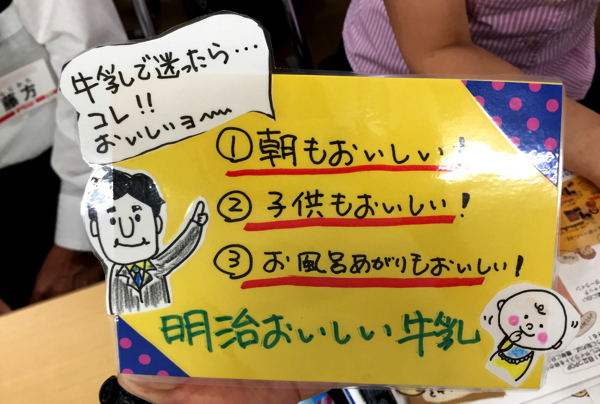 牛乳で迷ったら…
コレ!!
おいしいョ〜
①朝もおいしい!
②子供もおいしい!
③お風呂あがりもおいしい!
明治おいしい牛乳
藤方